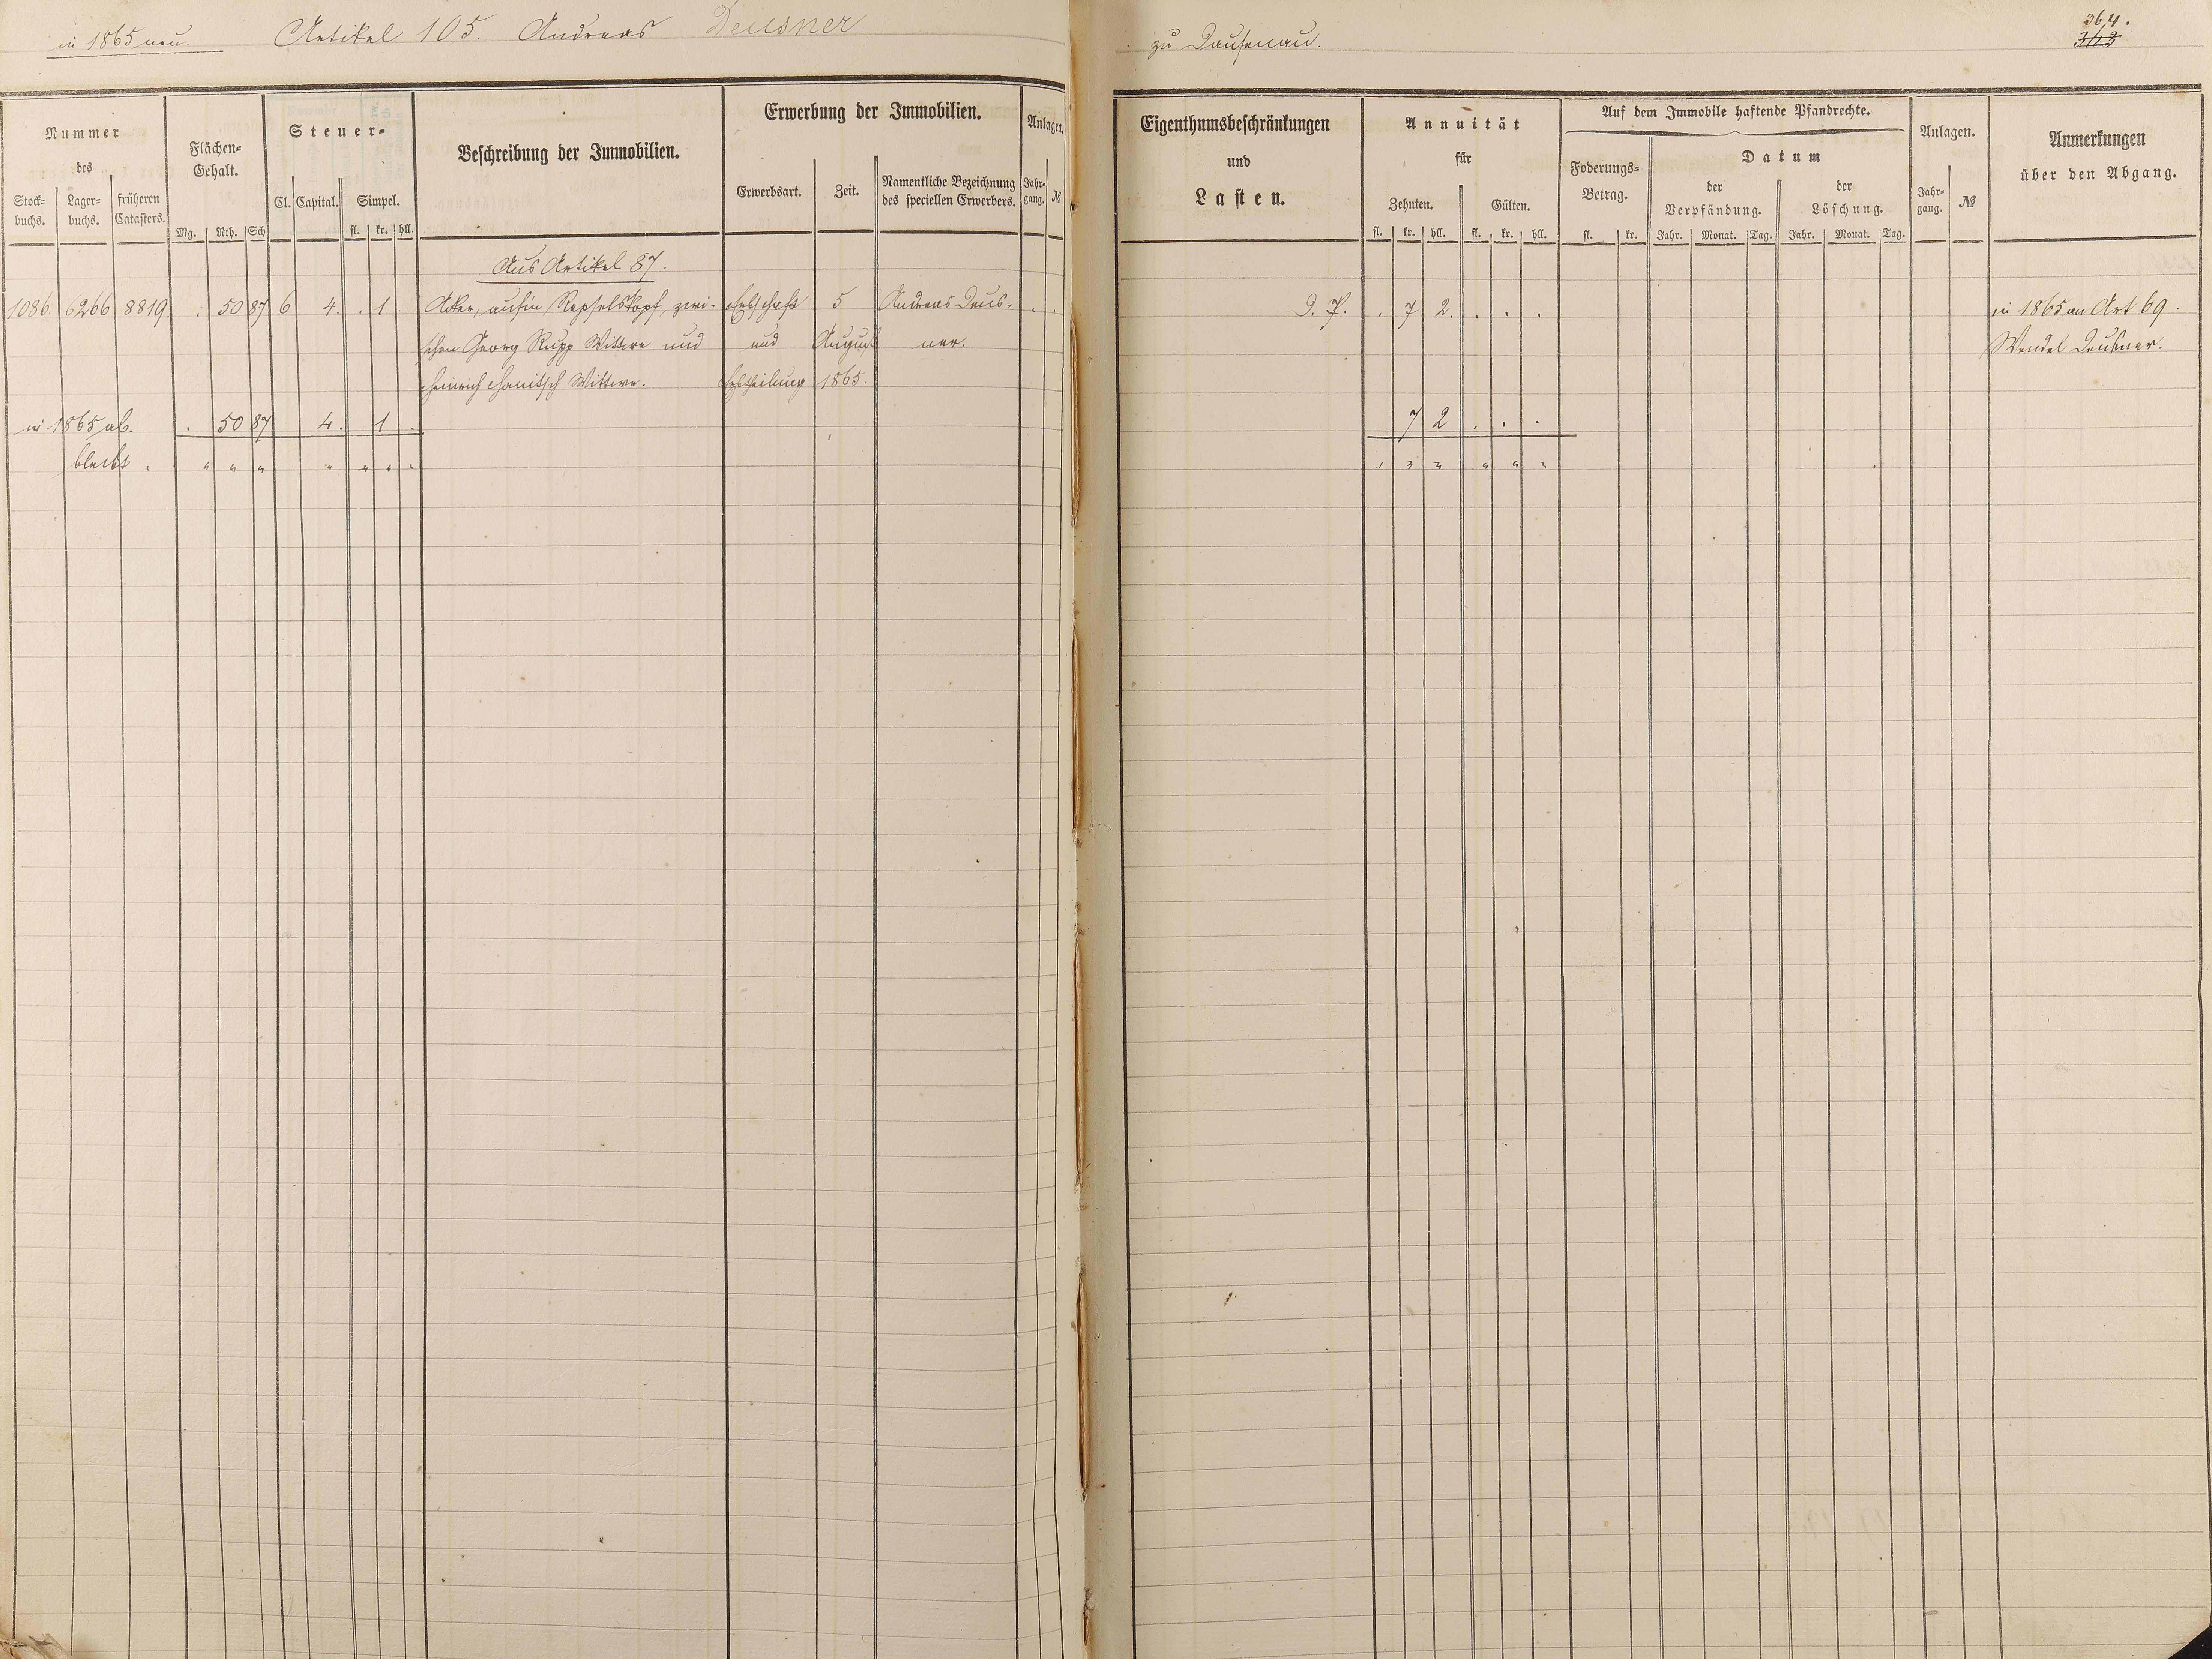 in 1865 neu. Artikel 105. Andreas Deusner zu Dausenau. 364.
363
Nummer des
Stock-buchs. Lager-buchs. früheren Catasters.
Flächen-Gehalt.
Mg. Rth. Sch
Steuer-
Cl. Capital. Simpel.
fl. kr. hll.
Beschreibung der Immobilien.
Erwerbung der Immobilien.
Erwerbsart. Zeit. Namentliche Bezeichnung des speciellen Erwerbers.
Anlagen.
Jahr-gang. №
Eigenthumsbeschränkungen
und
Lasten.
Annuität
für
Zehnten. Gülten.
fl. kr. hll. fl. kr. hll.
Auf dem Immobile haftende Pfandrechte.
Foderungs-Betrag.
fl. kr.
Datum
der Verpfändung. der Löschung.
Jahr. Monat. Tag. Jahr. Monat. Tag.
Anlagen.
Jahr-gang. №
Anmerkungen
über den Abgang.
Aus Artikel 87.
1086 6266 8819. . 50 87 6 4. . 1 . Acker, aufm Kopf, zwi- Erbschaft 5 Andreas Deus- . . D. P. . 7 2. . . . in 1865 an Art 69.
schen Georg Rupp Wittwe und und August ner. Wendel Deusner.
Heinrich Wittwe. Erbtheilung 1865.
in 1865 ab. . 50 87 4. 1 . 7 2 . . .
bleibt . " " " " " " " " " " " " "